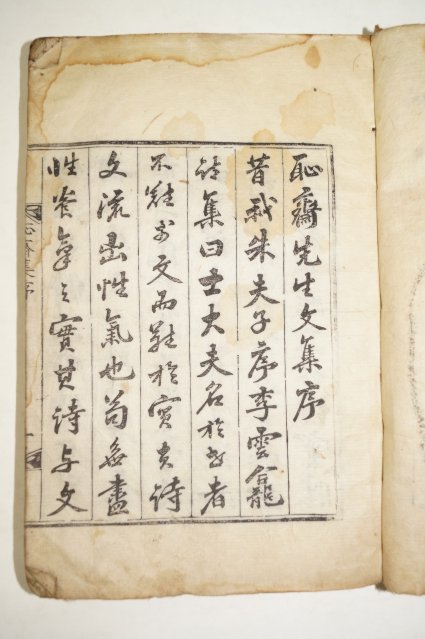 恥齋先生文集序
昔我朱夫子序李雲龕
詩集曰士大夫名於世者
不難於文而難於實夫詩
文流出性氣也苟無盡
性養氣之實其詩與文